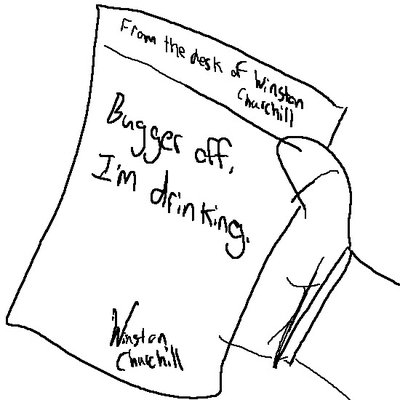 From the desk of Winston
Churchill
Bugger off,
I'm drinking.
Winston
Churchill